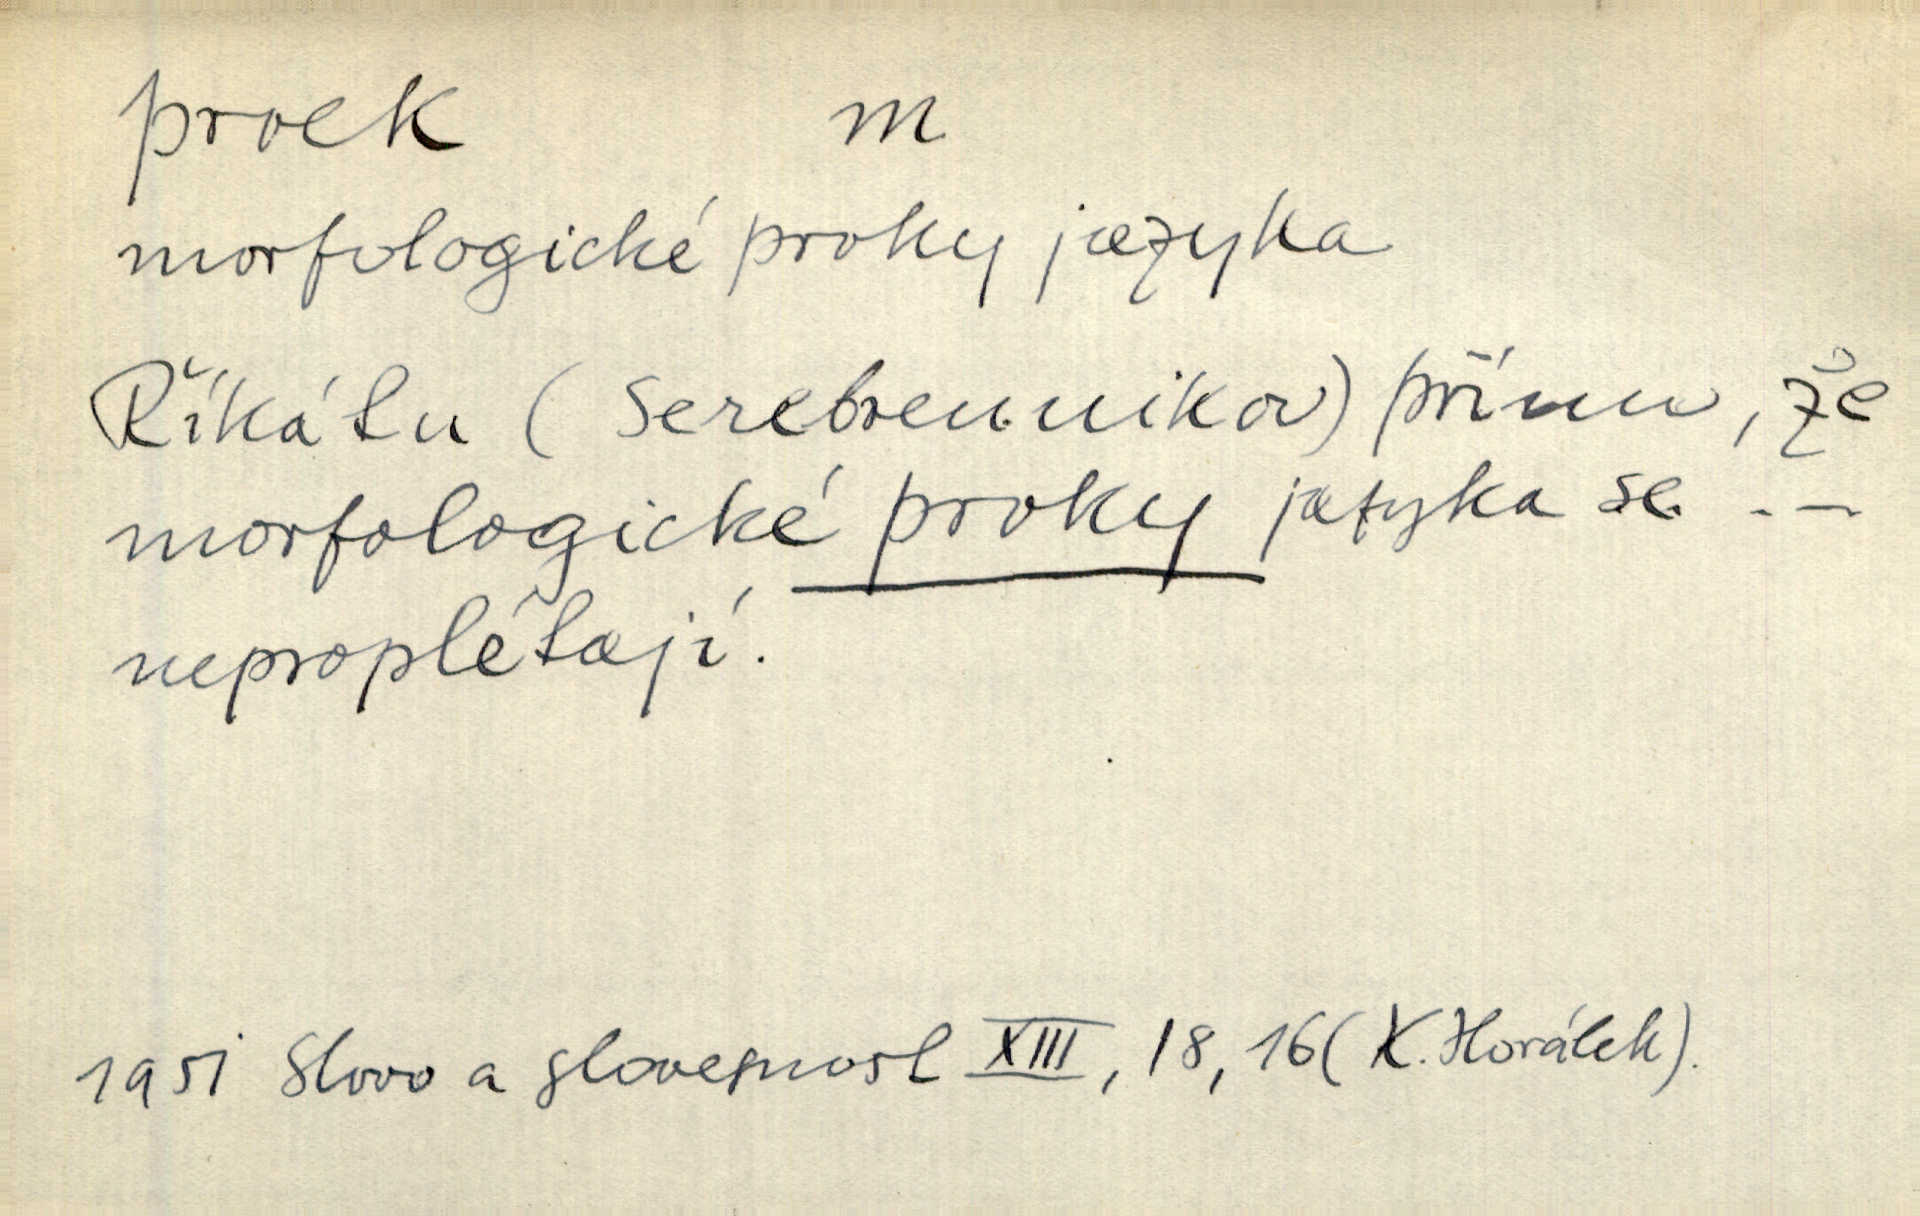 prvek m
morfologické prvky jazyka
Říká tu (Serebrennikov) přímo, že
morfologické prvky jazyka se - —
neproplétají.
1951 Slovo a slovesnost XIII, 18, 16 (K. Horálek).